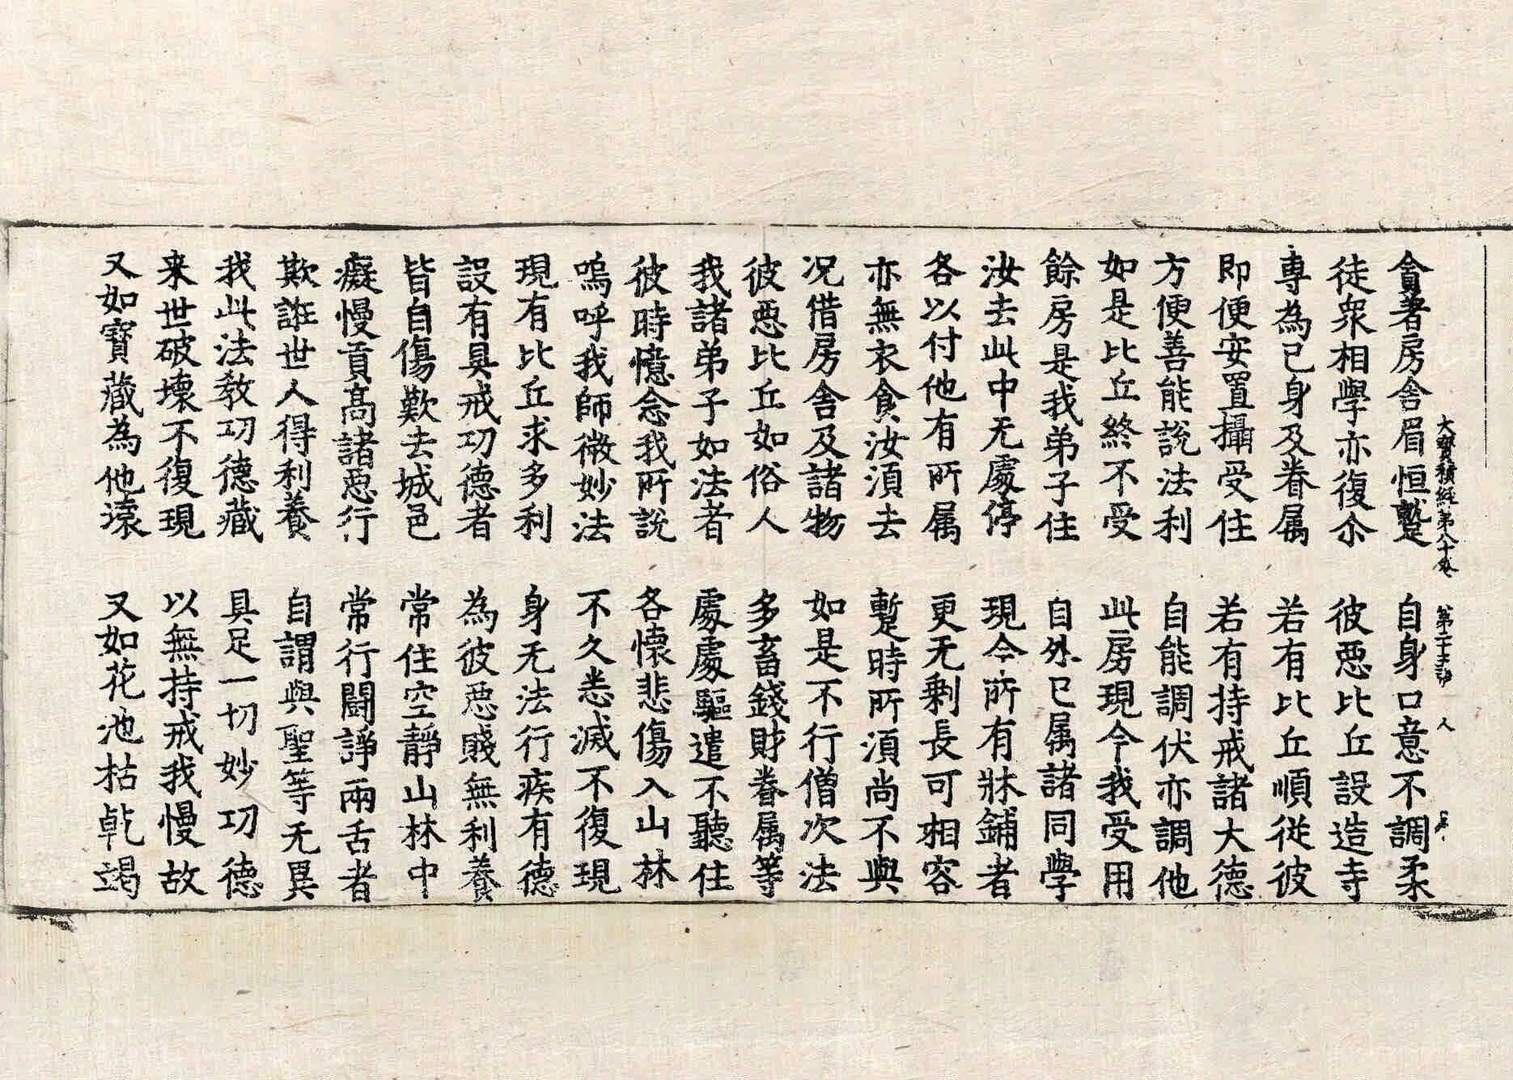 大寳積經第八十卷 第二十六張 人
貪著房舍眉恒蹙 自身口意不調柔
徒衆相學亦復尒 彼惡比丘設造寺
專為已身及眷属 若有比丘順從彼
即便安置攝受住 若有持戒諸大德
方便善能說法利 自能調伏亦調他
如是比丘終不受 此房現今我受用
餘房是我弟子住 自外已属諸同學
汝去此中无處停 現今所有牀鋪者
各以付他有所属 更无剩長可相容
亦無衣食汝湏去 暫時所湏尚不與
况借房舍及諸物 如是不行僧次法
彼惡比丘如俗人 多畜錢財眷属等
我諸弟子如法者 處處驅遣不聽住
彼時憶念我所說 各懷悲傷入山林
嗚呼我師微妙法 不久悉滅不復現
現有比丘求多利 身无法行疾有德
設有具戒功德者 為彼惡賤無利養
皆自傷歎去城邑 常住空靜山林中
癡慢貢髙諸惡行 常行鬪諍兩舌者
欺誑世人得利養 自謂與聖等无異
我此法教功德藏 具足一切妙功德
来世破壞不復現 以無持戒我慢故
又如寶藏為他壞 又如花池枯乾竭